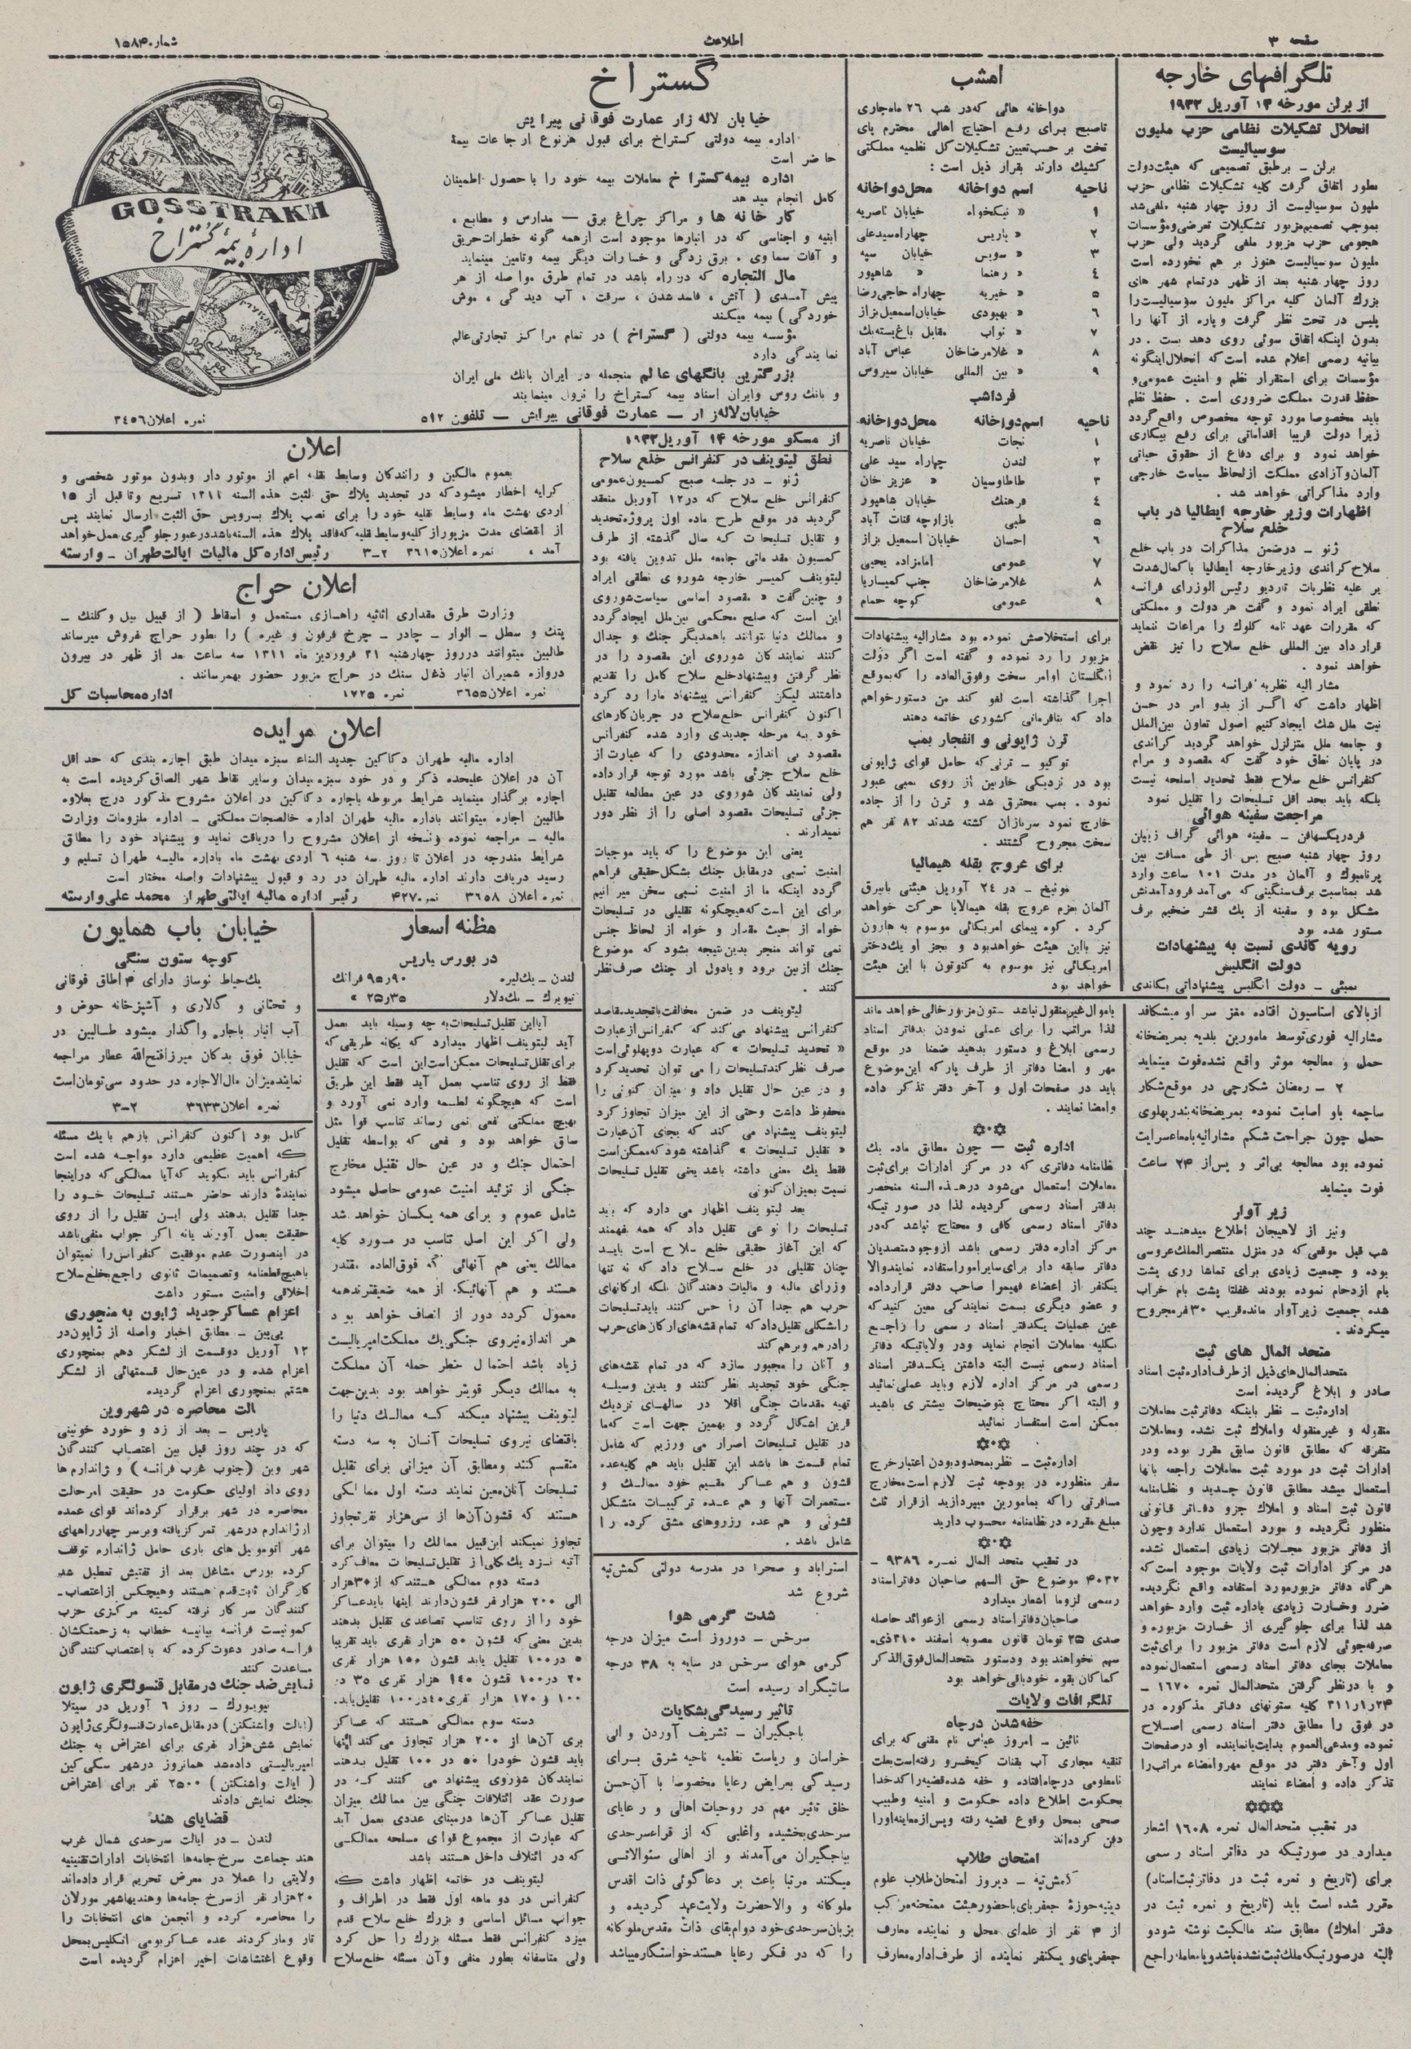 صفحه ۳
اطلاعات
شماره ۱۵۸۴
تلگرافهای خارجه
از برلن مورخه ۱۴ آوریل ۱۹۳۲
انحلال تشکیلات نظامی حزب ملیون
سوسیالیست
برلن – برطبق تصمیمی که هیئت دولت
بطور اتفاق گرفت کلیه تشکیلات نظامی حزب
ملیون سوسیالیست از روز چهار شنبه ملغی شد
بموجب تصمیم مزبور تشکیلات تعرضی و مؤسسات
هجومی حزب مزبور ملغی گردید ولی حزب
ملیون سوسیالیست هنوز بر هم نخورده است
روز چهار شنبه بعد از ظهر در تمام شهر های
بزرك آلمان کلیه مراکز ملیون سوسیالیست را
پلیس در تحت نظر گرفت و پاره از آنها را
بدون اینکه اتفاق سوئی روی دهد بست . در
بیانیه رسمی اعلام شده است که انحلال اینگونه
مؤسسات برای استقرار نظم و امنیت عمومی و
حفظ قدرت مملکت ضروری است . حفظ نظم
باید مخصوصا مورد توجه مخصوص واقع گردد
زیرا دولت قریبا اقداماتی برای رفع بیکاری
خواهد نمود و برای دفاع از حقوق حیاتی
آلمان و آزادی مملکت از لحاظ سیاست خارجی
وارد مذاکراتی خواهد شد .
اظهارات وزیر خارجه ایطالیا در باب
خلع سلاح
ژنو – در ضمن مذاکرات در باب خلع
سلاح کراندی وزیر خارجه ایطالیا با کمال شدت
بر علیه نظریات تاردیو رئیس الوزرای فرانسه
نطقی ایراد نمود و گفت هر دولت و مملکتی
که مقررات عهد نامه کلوك را مراعات ننماید
قرار داد بین المللی خلع سلاح را نیز نقض
خواهد نمود .
مشار الیه نظریه فرانسه را رد نمود و
اظهار داشت که اگر از بدو امر در حسن
نیت ملل شك ایجاد کنیم اصول تعاون بین الملل
و جامعه ملل متزلزل خواهد گردید کراندی
در پایان نطق خود گفت که مقصود و مرام
کنفرانس خلع سلاح فقط تحدید اسلحه نیست
بلکه باید بحد اقل تسلیحات را تقلیل نمود
مراجعت سفینه هوائی
فردریکسهافن – سفینه هوائی گراف زپلین
روز چهار شنبه صبح پس از طی مسافت بین
پرنامبوك و آلمان در مدت ۱۰۱ ساعت وارد
شد بمناسبت برف سنگینی که می آمد فرود آمدنش
مشکل بود و سفینه از یك قشر ضخیم برف
مستور شده بود
رویه کاندی نسبت به پیشنهادات
دولت انگلیس
بمبئی – دولت انگلیس پیشنهاداتی بکاندی
امشب
دواخانه هائی که در شب ۲۶ ماه جاری
تا صبح برای رفع احتیاج اهالی محترم پای
تخت بر حسب تعیین تشکیلات کل نظمیه مملکتی
کشیك دارند بقرار ذیل است :
ناحیه اسم دواخانه محل دواخانه
۱ « نیکخواه خیابان ناصریه
۲ « پاریس چهار اه سید علی
۳ « سویس خیابان سپه
۴ « رهنما « شاهپور
۵ « خیریه چهار اه حاجی رضا
۶ « بهبودی خیابان اسمعیل بزاز
۷ « نواب مقابل باغ بسته بك
۸ « غلامرضا خان عباس آباد
۹ « بین المللی خیابان سیروس
فردا شب
ناحیه اسم دواخانه محل دواخانه
۱ نجات خیابان ناصریه
۲ لندن چهار راه سید علی
۳ طاطاوسیان « عزیز خان
۴ فرهنك خیابان شاهپور
۵ طبی بازارچه قنات آباد
۶ احسان خیابان اسمعیل بزاز
۷ عمومی امامزاده یحیی
۸ غلامرضاخان جنب کمیساریا
۹ عمومی کوچه حمام
برای استخلاصش نموده بود مشارالیه پیشنهادات
مزبور را رد نموده و گفته است اگر دولت
انگلستان اوامر سخت وفوق العاده را که بموقع
اجرا گذاشته است لغو کند من دستور خواهم
داد که بنافرمانی کشوری خاتمه دهند
ترن ژاپونی و انفجار بمب
توکیو – ترنی که حامل قوای ژاپونی
بود در نزدیکی خاربین از روی بمبی عبور
نمود . بمب محترق شد و ترن را از جاده
خارج نمود سربازان کشته شدند ۸۲ نفر هم
سخت مجروح گشتند .
برای عروج بقله هیمالیا
مونیخ – در ۲۴ آوریل هیئتی بابیرق
آلمان بعزم عروج بقله هیمالایا حرکت خواهد
کرد . کوه پیمای امریکائی موسوم به هارون
نیز با این هیئت خواهد بود و بجز او یك دختر
امریکائی نیز موسوم به کنوتون با این هیئت
خواهد بود
گستراخ
خیابان لاله زار عمارت فوقانی پیرایش
اداره بیمه دولتی کستراخ برای قبول هر نوع ارجاعات بیمهٔ
حاضر است
اداره بیمه کستراخ معاملات بیمه خود را با حصول اطمینان
کامل انجام میدهد
کارخانه ها و مراکز چراغ برق – مدارس و مطابع ،
ابنیه و اجناسی که در انبارها موجود است از همه گونه خطرات حریق
و آفات سماوی . برق زدگی و خسارات دیگر بیمه و تامین مینماید
مال التجاره که در راه باشد در تمام طرق مواصله از هر
پیش آمدی ( آتش ، فاسد شدن ، سرقت ، آب دیدگی ، موش
خوردگی ) بیمه میکند
مؤسسه بیمه دولتی ( گستراخ ) در تمام مراکز تجارتی عالم
نمایندگی دارد
بزرگترین بانگهای عالم منجمله در ایران بانك ملی ایران
و بانك روس و ایران اسناد بیمه کستراخ را نزول مینمایند
خیابان لاله زار – عمارت فوقانی پیرایش – تلفون ۵۱۲
GOSSTRAKH
ادارهٔ بیمه گستراخ
نمره اعلان ۳۴۵۶
از مسکو مورخه ۱۴ آوریل ۱۹۳۲
نطق لیتوینف در کنفرانس خلع سلاح
ژنو – در جلسه صبح کمسیون عمومی
کنفرانس خلع سلاح که در ۱۲ آوریل منعقد
گردید در موقع طرح ماده اول پروژه تحدید
و تقلیل تسلیحات که سال گذشته از طرف
کمسیون مقدماتی جامعه ملل تدوین یافته بود
لیتوینف کمیسر خارجه شوروی نطقی ایراد
و چنین گفت « مقصود اساسی سیاست شوروی
این است که صلح محکمی بین ملل ایجاد گردد
و ممالك دنیا نتوانند با همدیگر جنك و جدال
کنند نمایندکان شوروی این مقصود را در
نظر گرفتن و پیشنهاد خلع سلاح کامل را تقدیم
داشتند لیکن کنفرانس پیشنهاد ما را رد کرد
اکنون کنفرانس خلع سلاح در جریان کارهای
خود به مرحله جدیدی وارد شده کنفرانس
مقصود بی اندازه محدودی را که عبارت از
خلع سلاح جزئی باشد مورد توجه قرار داده
ولی نمایندکان شوروی در عین مطالعه تقلیل
جزئی تسلیحات مقصود اصلی را از نظر دور
نمیدارند .
یعنی این موضوع را که باید موجبات
امنیت نسبی در مقابل جنك بشکل حقیقی فراهم
گردد اینکه ما از امنیت نسبی سخن میرانیم
برای این است که هیچگونه تقلیلی در تسلیحات
خواه از حیث مقدار و خواه از لحاظ جنس
نمی تواند منجر بدین نتیجه بشود که موضوع
جنك از بین برود و یا دول از جنك صرف نظر
کنند .
لیتوینف در ضمن مخالفت با تجدید مقاصد
کنفرانس پیشنهاد می کند که کنفرانس از عبارت
« تحدید تسلیحات » که عبارت دوپهلوئی است
صرف نظر کند تسلیحات را می توان تحدید کرد
و در عین حال تقلیل داد و میزان کنونی را
محفوظ داشت وحتی از این میزان تجاوز کرد
لیتوینف پیشنهاد می کند که بجای آن عبارت
« تقلیل تسلیحات » گذاشته شود که ممکن است
فقط یك معنی داشته باشد یعنی تقلیل تسلیحات
نسبت بمیزان کنونی
بعد لیتوینف اظهار می دارد که باید
تسلیحات را نوعی تقلیل داد که همه بفهمند
که این آغاز حقیقی خلع سلاح است بایـد
چنان تقلیلی در خلع سلاح داد که نه تنها
وزرای مالیه و مالیات دهندگان بلکه ارکانهای
حرب هم جدا آن را حس کنند باید تسلیحات
را بشکلی تقلیل داد که تمام نقشه های ارکان های حرب
را در هم و برهم کند
و آنان را مجبور سازد که در تمام نقشه های
جنگی خود تجدید نظر کنند و بدین وسیله
تهیه مقدمات جنگی اقلا در سالهای نزدیك
قرین اشکال گردد و بهمین جهت است که ما
در تقلیل تسلیحات اصرار می ورزیم که شامل
تمام قسمت ها باشد این تقلیل باید هم کلیه عده
قشون و هم عساکر مقیم خود ممالك و
مستعمرات آنها و هم عده ترکیبات متشکل
قشونی و هم عده رزروهای مشق کرده را
شامل باشد .
اعلان
بعموم مالکین و رانندکان وسایط نقلیه اعم از موتور دار وبدون موتور شخصی و
کرایه اخطار میشود که در تجدید پلاك حق الثبت هذه السنه ۱۳۱۱ تسریع و تا قبل از ۱۵
اردی بهشت ماه وسایط نقلیه خود را برای نصب پلاك بسرویس حق الثبت ارسال نمایند پس
از انقضای مدت مزبور از کلیه وسایط نقلیه که فاقد پلاك هذه السنه باشد در عبور جلوگیری بعمل خواهد
آمد . نمره اعلان ۳۶۱۵ ۳–۲ رئیس اداره کل مالیات ایالت طهران – وارسته
اعلان حراج
وزارت طرق مقداری اثاثیه راهسازی مستعمل و اسقاط ( از قبیل بیل و کلنك –
پتك و سطل – الوار – چادر – چرخ فرقون و غیره ) را بطور حراج فروش میرساند
طالبین میتوانند در روز چهارشنبه ۳۱ فروردین ماه ۱۳۱۱ سه ساعت بعد از ظهر در بیرون
دروازه شمیران انبار ذغال سنك در حراج مزبور حضور بهمرسانند .
نمره اعلان ۳۶۵۵ نمره ۱۷۲۵ اداره محاسبات کل
اعلان مزایده
اداره مالیه طهران دکاکین جدید البناء سبزه میدان طبق اجاره بندی که حد اقل
آن در اعلان علیحده ذکر و در خود سبزه میدان و سایر نقاط شهر الصاق کردیده است به
اجاره برگذار مینماید شرایط مربوطه باجاره دکاکین در اعلان مشروح مذکور درج بعلاوه
طالبین اجاره میتوانند باداره مالیه طهران اداره خالصجات مملکتی – اداره ملزومات وزارت
مالیه – مراجعه نموده ونسخه از اعلان مشروح را دریافت نماید و پیشنهاد خود را مطابق
شرایط مندرجه در اعلان تا روز سه شنبه ۶ اردی بهشت ماه باداره مالیه طهران تسلیم و
رسید دریافت دارند اداره مالیه طهران در رد و قبول پیشنهادات واصله مختار است
نمره اعلان ۳۶۵۸ نمره ۴۲۷۰ رئیس اداره مالیه ایالتی طهران محمد علی وارسته
مظنه اسعار
در بورس پاریس
لندن – یك لیره ۹۵٫۹۰ فرانك
نیویرك – یك دلار ۲۵٫۳۵ »
آیا این تقلیل تسلیحات به چه وسیله باید بعمل
آید لیتوینف اظهار میدارد که یکانه طریقی که
برای تقلل تسلیحات ممکن است این است که تقلیل
فقط از روی تناسب بعمل آید فقط این طریق
است که هیچگونه لطمه وارد نمی آورد و
بهیچ مملکتی نفعی نمی رساند تناسب قوا مثل
سابق خواهد بود و نفعی که بواسطه تقلیل
احتمال جنك و در عین حال تقلیل مخارج
جنگی از تزئید امنیت عمومی حاصل میشود
شامل عموم و برای همه یکسان خواهد شد
ولی اکر این اصل تناسب در مورد کلیه
ممالك یعنی هم آنهائی که فوق العاده مقتدر
هستند و هم آنهائیکه از همه ضعیفترند همه
معمول گردد دور از انصاف خواهد بود
هر اندازه نیروی جنگی یك مملکت امپریالیست
زیاد باشد احتمال خطر حمله آن مملکت
به ممالك دیگر قویتر خواهد بود بدین جهت
لیتوینف پیشنهاد میکند که ممالك دنیا را
باقتضای نیروی تسلیحات آنسان به سه دسته
منقسم کنند و مطابق آن میزانی برای تقلیل
تسلیحات آنان معین نمایند دسته اول ممالکی
هستند که قشون آن ها از سی هزار نفر تجاوز
تجاوز نمیکند این قبیل ممالك را میتوان برای
آتیه نزدیك کلی از تقلیل تسلیحات معاف کرد
دسته دوم ممالکی هستند که از ۳۰ هزار
الی ۲۰۰ هزار نفر قشون دارند اینها باید عساکر
خود را از روی تناسب تصاعدی تقلیل بدهند
بدین معنی که قشون ۵۰ هزار نفری باید تقریبا
۵ در ۱۰۰ تقلیل یابد قشون ۱۵۰ هزار نفری
۲۰ در ۱۰۰ قشون ۱۴۵ هزار نفری ۳۵ در
۱۰۰ و ۱۷۰ هزار نفری ۴۰ در ۱۰۰ تقلیل یابد.
دسته سوم ممالکی هستند که عساکر
بری آن ها از ۲۰۰ هزار تجاوز می کند اینها
باید قشون خود را ۵۰ در ۱۰۰ تقلیل بدهند
نمایندکان شوروی پیشنهاد می کنند که در
صورت عقد ائتلافات جنگی بین ممالك میزان
تقلیل عساکر آن ها در مبنای عددی بعمل آید
که عبارت از مجموع قوای مسلحه ممالکی
که در ائتلاف داخل هستند باشد
لیتوینف در خاتمه اظهار داشت که
کنفرانس در دو ماهه اول فقط در اطراف و
جوانب مسائل اساسی و بزرك خلع سلاح قدم
میزد کنفرانس فقط مسئله بزرك را حل کرد
ولی متاسفانه بطور منفی و آن مسئله خلع سلاح
خیابان باب همایون
کوچه ستون سنگی
یك حیاط نوساز دارای ۴ اطاق فوقانی
و تحتانی و کالاری و آشپزخانه حوض و
آب انبار باجاره واگذار میشود طالبین در
خیابان فوق بدکان میرزا فتح الله عطار مراجعه
نمایند میزان مال الاجاره در حدود سی تومان است
نمره اعلان ۳۶۳۳ ۳–۲
کامل بود اکنون کنفرانس بازهم با یك مسئله
که اهمیت عظیمی دارد مواجهه شده است
کنفرانس باید بگوید که آیا ممالکی که در اینجا
نمایندهٔ دارند حاضر هستند تسلیحات خود را
جدا تقلیل بدهند ولی این تقلیل را از روی
حقیقت بعمل آورند یا نه اکر جواب منفی باشد
در اینصورت عدم موفقیت کنفرانس را نمیتوان
با هیچ قطعنامه و تصمیمات ثانوی راجع بخلع سلاح
اخلاقی وامنیت مستور داشت
اعزام عساکر جدید ژاپون به منچوری
پی پین – مطابق اخبار واصله از ژاپون در
۱۲ آوریل دو قسمت از لشکر دهم بمنچوری
اعزام شده و در عین حال قسمتهائی از لشکر
هشتم بمنچوری اعزام گردیده
حالت محاصره در شهر وین
پاریس – بعد از زد و خورد خونینی
که در چند روز قبل بین اعتصاب کنندگان
شهر وین (جنوب غرب فرانسه ) و ژاندارم ها
روی داد اولیای حکومت در حقیقت امر حالت
محاصره در شهر برقرار کرده اند قوای عمده
ژاندارم در شهر تمرکز یافته وبرسر چهار راههای
شهر اتوموبیل های باری حامل ژاندارم توقف
کرده بورس مشاغل بعد از تفتیش تعطیل شد
کارگران ثابت قدم هستند وهیچکس از اعتصاب-
کنندگان سر کار نرفته کمیته مرکزی حزب
کمونیست فرانسه بیانیه خطاب به زحمتکشان
فرانسه صادر دعوت کرده که با اعتصاب کنندگان
مساعدت کنند
نمایش ضد جنك در مقابل قنسولگری ژاپون
نیویورك – روز ۶ آوریل در سیتلا
(ایالت واشنگتن) در مقابل عمارت قنسولگری ژاپون
نمایش شش هزار نفری برای اعتراض به جنك
امپریالیستی داده شد همانروز در شهر سکی کین
( ایالت واشنگتن ) ۲۵۰۰ نفر برای اعتراض
بجنك نمایش دادند
قضایای هند
لندن – در ایالت سرحدی شمال غرب
هند جماعت سرخ جامه ها انتخابات ادارات تقنینیه
ولایتی را عملا در معرض تحریم قرار داده اند
۲۰ هزار نفر از سرخ جامه ها وهندیها شهر مورلان
را محاصره کرده و انجمن های انتخابات را
تار و مار کردند عده عساکر بومی انگلیس بمحل
وقوع اغتشاشات اخیر اعزام گردیده است
از بالای استاسیون افتاده مغز سر او میشکافد
مشارالیه فوری توسط مامورین بلدیه بمریضخانه
حمل و معالجه موثر واقع نشده فوت مینماید
۲ – رمضان شکارچی در موقع شکار
ساچمه باو اصابت نموده بمریضخانه بندر پهلوی
حمل چون جراحت شکم مشارالیه بامعا سرایت
نموده بود معالجه بی اثر و پس از ۲۴ ساعت
فوت مینماید
زیر آوار
ونیز از لاهیجان اطلاع میدهند چند
شب قبل موقعی که در منزل منتصر الملك عروسی
بوده و جمعیت زیادی برای تماشا روی پشت
بام ازدحام نموده بودند غفلتا پشت بام خراب
شده جمعیت زیر آوار مانده قریب ۳۰ نفر مجروح
میکردند .
متحد المال های ثبت
متحد المال های ذیل از طرف اداره ثبت اسناد
صادر و ابلاغ گردیده است
اداره ثبت – نظر باینکه دفاتر ثبت معاملات
منقوله و غیر منقوله واملاك ثبت نشده ومعاملات
متفرقه که مطابق قانون سابق مقرر بوده ودر
ادارات ثبت در مورد ثبت معاملات راجعه بانها
استعمال میشد مطابق قانون جدید و نظامنامه
قانون ثبت اسناد و املاك جزو دفاتر قانونی
منظور نگردیده و مورد استعمال ندارد وچون
از دفاتر مزبور مجلات زیادی استعمال نشده
در مرکز ادارات ثبت ولایات موجود است که
هرگاه دفاتر مزبور مورد استفاده واقع نگردیده
ضرر وخسارت زیادی باداره ثبت وارد خواهد
شد لذا برای جلوگیری از خسارت مزبوره و
صرفه جوئی لازم است دفاتر مزبور را برای ثبت
معاملات بجای دفاتر اسناد رسمی استعمال نموده
و با در نظر گرفتن متحد المال نمره ۱۶۷۰ –
۳۱۱٫۱٫۲۴ کلیه ستونهای دفاتر مذکوره در
در فوق را مطابق دفتر اسناد رسمی اصلاح
نموده ومدعی العموم بدایت یا نماینده او در صفحات
اول و آخر دفتر در موقع مهر وامضاء مراتب را
تذکر داده و امضاء نمایند
در تعقیب متحد المال نمره ۱۶۰۸ اشعار
میدارد در صورتیکه در دفاتر اسناد رسمی
برای (تاریخ و نمره ثبت در دفاتر ثبت اسناد)
مقرر شده است باید (تاریخ و نمره ثبت در
دفتر املاك) مطابق سند مالکیت نوشته شود و
البته در صورتیکه ملك ثبت نشده باشد ویا معامله راجع
باموال غیر منقول نباشد ستون مزبور خالی خواهد ماند
لذا مراتب را برای عملی نمودن بدفاتر اسناد
رسمی ابلاغ و دستور بدهید ضمنا در موقع
مهر و امضا دفاتر از طرف پارکه این موضوع
باید در صفحات اول و آخر دفتر تذکر داده
وامضا نمایند .
اداره ثبت – چون مطابق ماده یك
نظامنامه دفاتری که در مرکز ادارات برای ثبت
معاملات استعمال می شود در هذه السنه منحصر
بدفتر اسناد رسمی گردیده لذا در صورتیکه
دفاتر اسناد رسمی کافی و محتاج نباشد که در
مرکز اداره دفتر رسمی باشد از وجود متصدیان
دفاتر سابقه دار برای سایر امور استفاده نمایند والا
یکنفر از اعضاء فهیم را صاحب دفتر قرار داده
و عضو دیگری بسمت نمایندگی معین کنید که
عین عملیات یکدفتر اسناد رسمی را راجع
بکلیه معاملات انجام نماید ودر ولایاتیکه دفاتر
اسناد رسمی نیست البته داشتن یکدفتر اسناد
رسمی در مرکز اداره لازم وباید عملی نمائید
و البته اکر محتاج بتوضیحات بیشتری باشید
ممکن است استفسار نمائید
اداره ثبت – نظر بمحدود بودن اعتبار خرج
سفر منظوره در بودجه ثبت لازم است مخارج
مسافرتی را که بمامورین میپردازید از قرار ثلث
مبلغ مقرره در نظامنامه محسوب دارید
در تعقیب متحد المال نمره ۹۳۸۶ –
۴۰۳۲ موضوع حق السهم صاحبان دفاتر اسناد
رسمی لزوما اشعار میدارد
صاحبان دفاتر اسناد رسمی از عوائد حاصله
صدی ۲۵ تومان قانون مصوبه اسفند ۳۱۰ ذی
سهم نخواهند بود ودستور متحد المال فوق الذکر
کماکان بقوه خود باقی خواهد بود
تلگرافات ولایات
خفه شدن در چاه
نائین – امروز عباس نام مقنی که برای
تنقیه مجاری آب بقنات کیخسرو رفته است بعلت
نامعلومی در چاه افتاده و خفه شده قضیه را کدخدا
بحکومت اطلاع داده حکومت و امنیه وطبیب
صحی بمحل وقوع قضیه رفته و پس از معاینه او را
دفن کرده اند
امتحان طلاب
کمش تپه – دیروز امتحان طلاب علوم
دینیه حوزهٔ جعفربای با حضور هیئت ممتحنه مرکب
از ۴ نفر از علمای محل و نماینده معارف
جعفربای و یکنفر نماینده از طرف اداره معارف
استراباد و صحرا در مدرسه دولتی کمش تپه
شروع شد
شدت گرمی هوا
سرخس – دو روز است میزان درجه
گرمی هوای سرخس در سایه به ۳۸ درجه
سانتیگراد رسیده است
تاثیر رسیدگی بشکایات
باجگیران – تشریف آوردن والی
خراسان و ریاست نظمیه ناحیه شرق برای
رسیدگی بعرایض رعایا مخصوصا با آن حسن
خلق تاثیر مهم در روحیات اهالی و رعایای
سرحدی بخشیده واغلبی که از قراء سرحدی
بباجگیران می آمدند و از اهالی سئوالاتی
میکنند مرتبا باعث بر دعاگوئی ذات اقدس
ملوکانه و والاحضرت ولایت عهد گردیده و
بزبان سرحدی خود دوام بقای ذات مقدس ملوکانه
را که در فکر رعایا هستند خواستگار میباشد